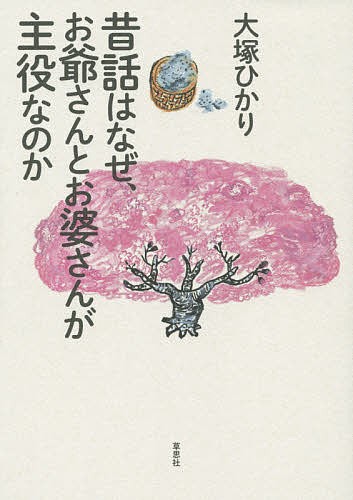 大塚ひかり
昔話はなぜ、
お爺さんとお婆さんが
主役なのか
草思社